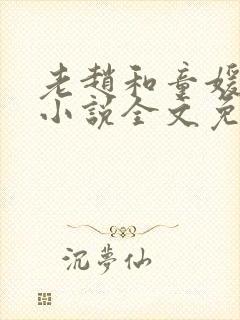 老趙和童媛
小說全文免
沉夢仙